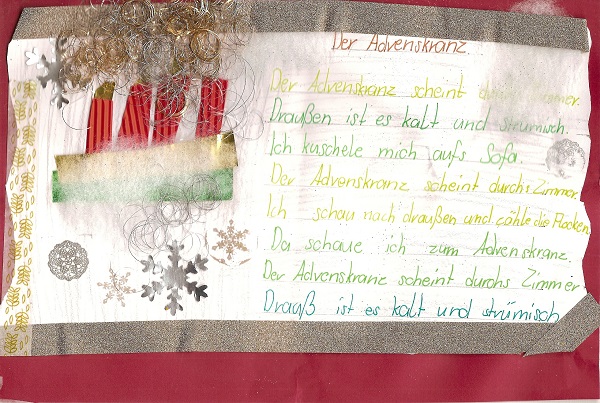 Der Advenskranz
Der Advenskranz scheint durchs Zimmer.
Draußen ist es kalt und strümisch.
Ich kuschele mich aufs Sofa.
Der Advenskranz scheint durchs Zimmer.
Ich schau nach draußen und zähle die Flocken
Da schaue ich zum Advenskranz.
Der Advenskranz scheint durchs Zimmer
Drauß ist es kalt und strümisch